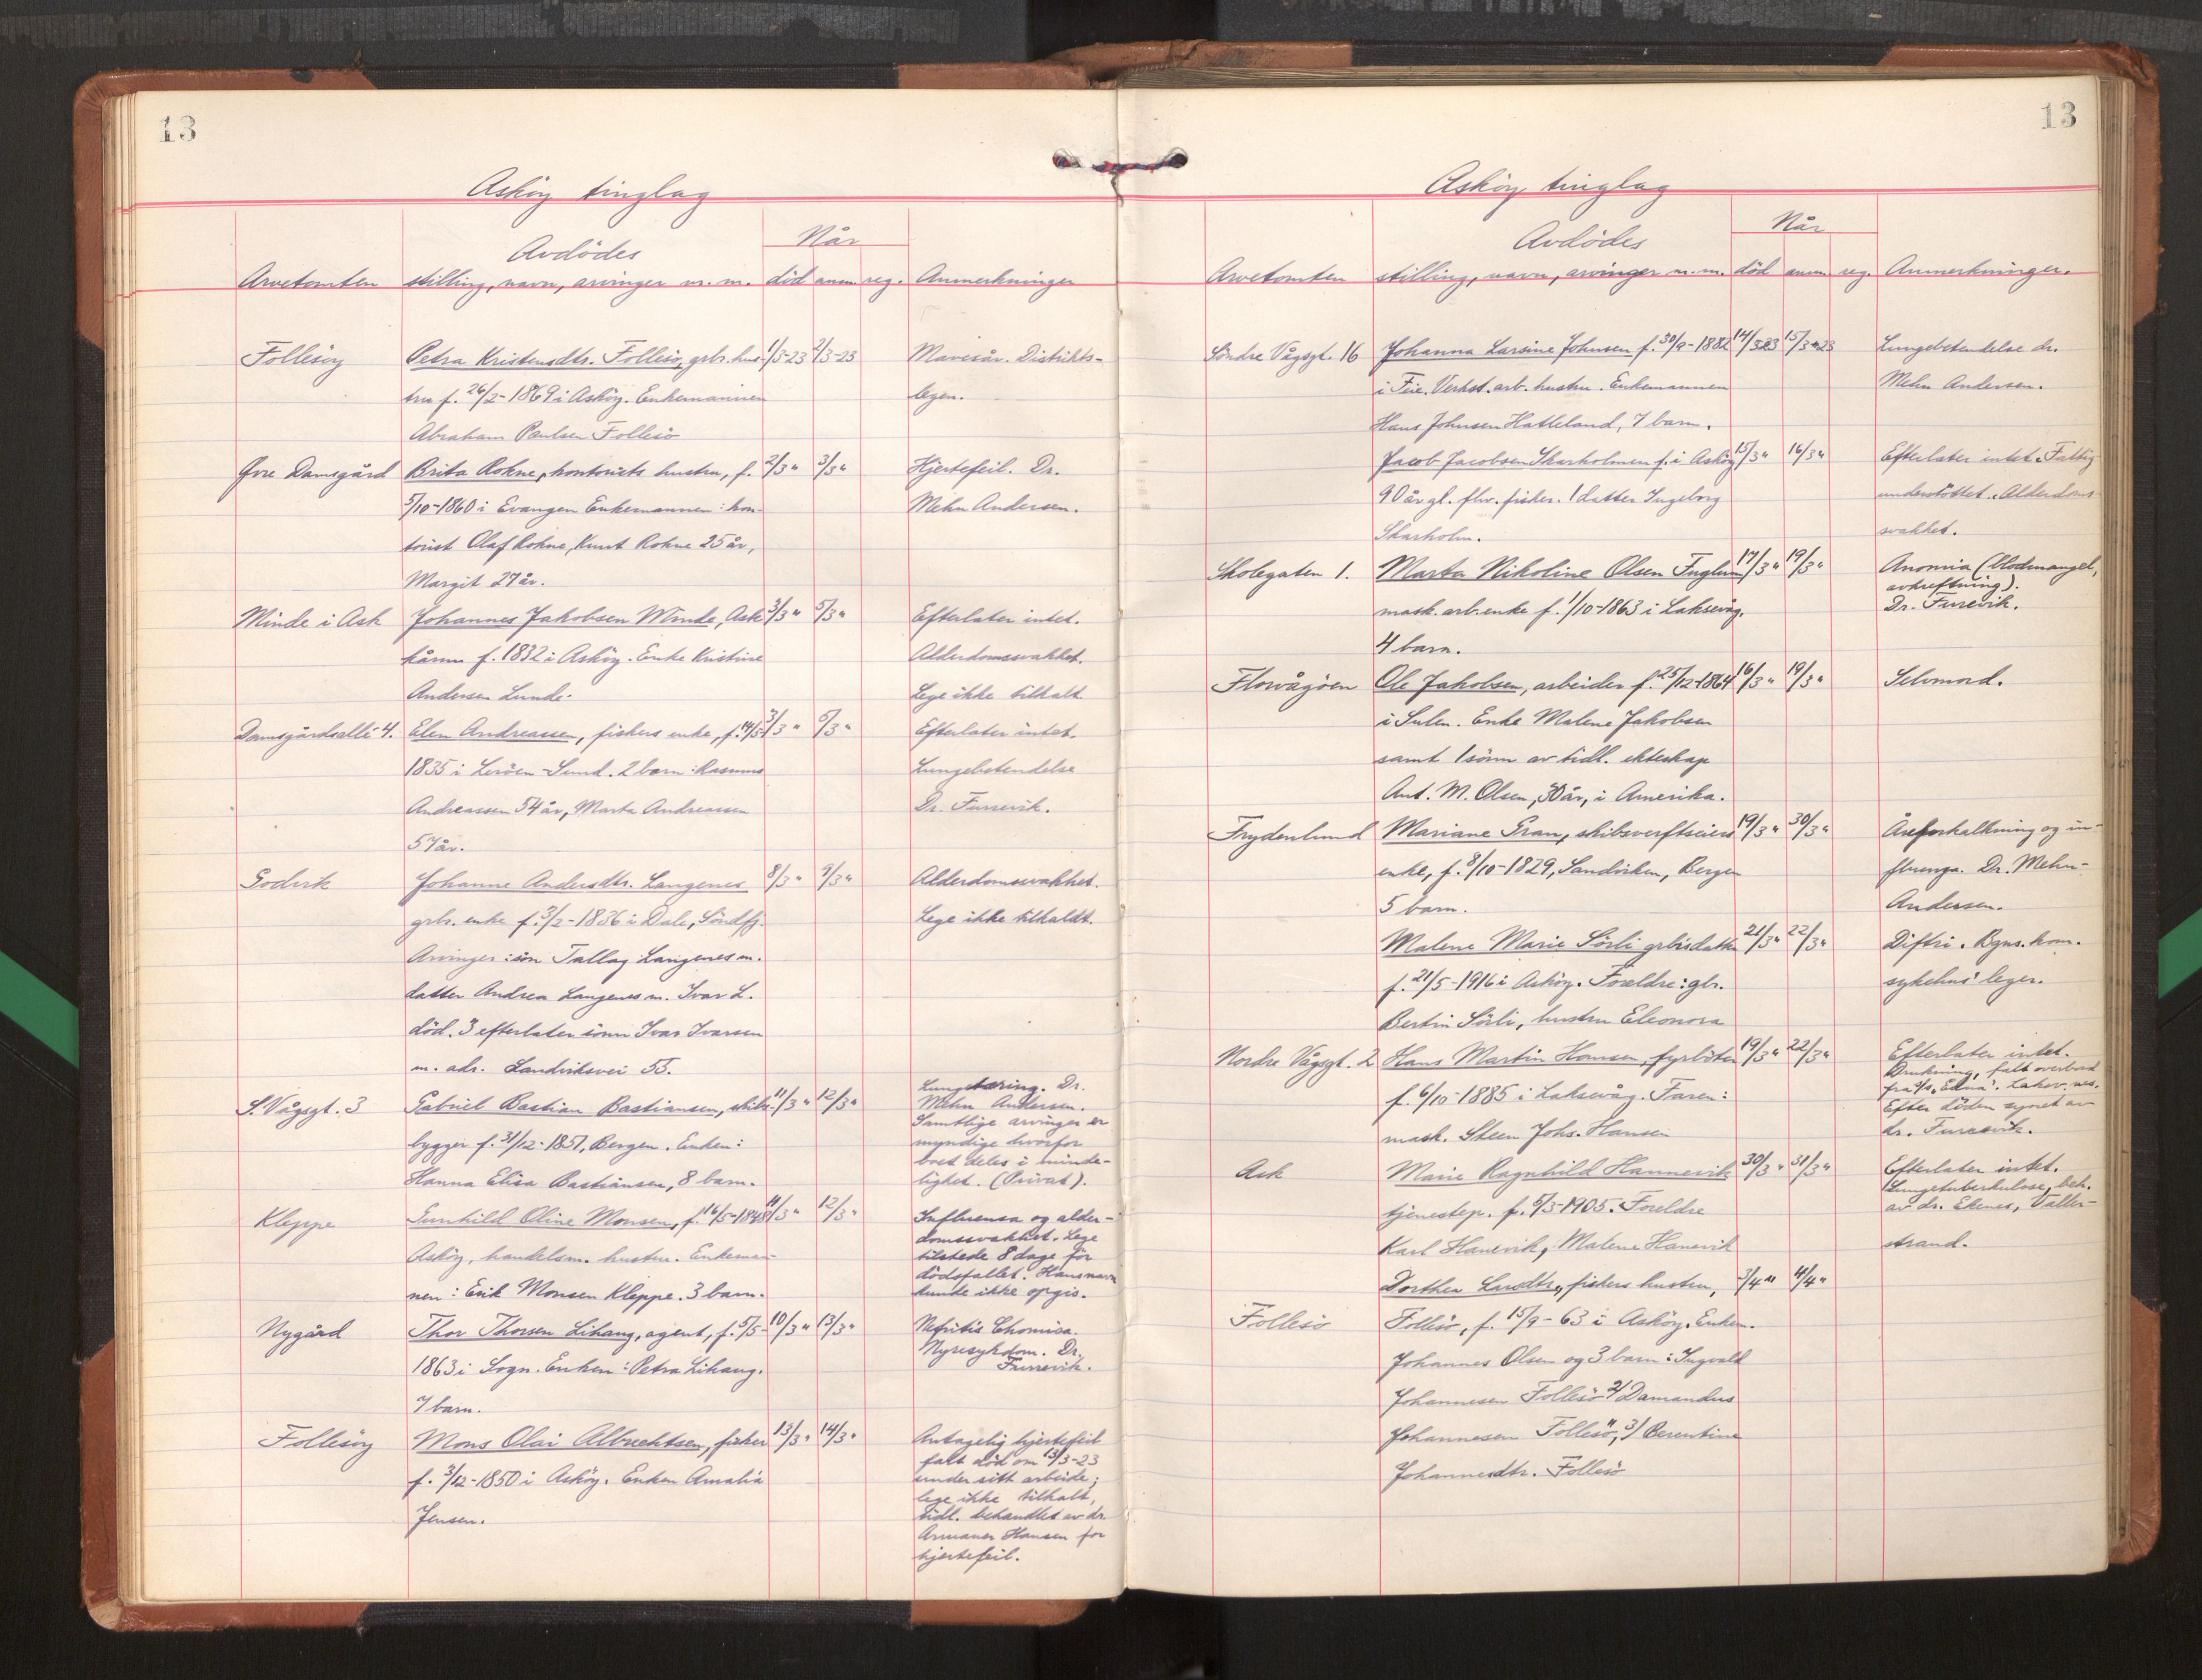 13
Asköy tinglag
Når
Avdödes
Arvetomten stilling, navn, arvinger m. m. död anm. reg. Anmerkninger
Follesöy Petra Kristensdtr. Follesö, grbr. hus- 1/3-23 2/3-23 Mavesår. Distrikts-
tru f. 26/2-1869 i Asköy. Enkemannen legen.
Abraham Paulsen Follesö
Øvre Damsgård Brita Rokne, kontorists hustru, f. 2/3 " 3/3 " Hjertefeil. Dr.
5/10-1860 i Evangen Enkemannen: kon- Mehn Andersen.
torist Olaf Rokne, Knut Rokne 25 år,
Margit 27 år.
Minde i Ask Johannes Jakobsen Minde, Ask 3/3 " 5/3 " Efterlater intet.
kårm. f. 1832 i Asköy. Enke Kristine Alderdomssvakhet.
Andersen Lunde. Lege ikke tilkalt
Damsgårdsallé 4. Elen Andreassen, fiskers enke, f. 14/5- 3/3 " 5/3 " Efterlater intet.
1835 i Leröen-Sund. 2 barn: Rasmus Lungebetendelse
Andreassen 54 år, Marta Andreassen Dr. Furrevik.
57 år.
Godvik Johanne Andersdtr. Langenes 8/3 " 9/3 " Alderdomssvakhet.
grbr. enke f. 3/2-1836 i Dale, Söndfj. Lege ikke tilkaldt.
Arvinger: sön Tallag Langenes m.
datter Andrea Langenes m. Ivar L.
död. 3 efterlater sönn Ivar Ivarsen
m. adr. Sandviksvei 55.
S. Vågsgt. 3 Gabriel Bastian Bastiansen, skibs- 11/3 " 12/3 " Lungetæring. Dr.
Mehn Andersen.
Samtlige arvinger er
bygger f. 31/12-1851, Bergen. Enken: myndige hvorfor
boet deles i minde-
Hanna Elisa Bastiansen, 8 barn. lighet. (Privat).
Kleppe Gunhild Oline Monsen, f. 16/5-1848 11/3 " 12/3 " Influensa og alder-
domssvakhet. Lege
Asköy, handelsm. hustru. Enkeman- tilstede 8 dage för
dödsfallet. Hans navn
nen: Erik Monsen Kleppe. 3 barn. kunde ikke opgis.
Nygård Thor Thorsen Lihaug, agent, f. 5/5- 10/3 " 13/3 " Nefritis Chonisa.
Nyresykdom. Dr.
1863 i Sogn. Enken: Petra Lihaug. Furrevik.
7 barn.
Follesöy Mons Olai Albrechtsen, fisker 13/3 " 14/3 " Antagelig hjertefeil
falt död om 13/3-23
f. 3/12-1850 i Asköy. Enken Amalia under sitt arbeide;
lege ikke tilkalt,
Jensen. tidl. behandlet av dr.
Armauer Hansen for
hjertefeil.
13
Asköy tinglag
Når
Avdödes
Arvetomten stilling, navn, arvinger m. m. död anm. reg. Anmerkninger.
Söndre Vågsgt. 16 Johanna Larsine Johnsen f. 30/9-1882 14/3-23 15/3-23 Lungebetendelse dr.
i Feie. Verkst. arb. hustru. Enkemannen Mehn Andersen.
Hans Johnsen Hatleland, 7 barn.
Jacob Jacobsen Skarholmen f. i Asköy 15/3 " 16/3 " Efterlater intet. Fattig-
90 år gl. fhv. fisker. 1 datter Ingeborg understöttet. Alderdoms-
Skarholm. svakhet.
Skolegaten 1. Marta Nikoline Olsen Fuglum 17/3 " 19/3 " Anomia (blodmangel,
avkreftning).
mask. arb. enke f. 1/10-1863 i Laksevåg. Dr. Furrevik.
4 barn.
Florvågöen Ole Jakobsen, arbeider f. 25/12-1864 16/3 " 19/3 " Selvmord.
i Sulen. Enke Malene Jakobsen
samt 1 sönn av tidl. ekteskap
Ant. M. Olsen, 30 år, i Amerika.
Frydenlund Mariane Gran, skibsverftseiers 19/3 " 30/3 " Åreforkalkning og in-
enke, f. 8/10-1829, Sandviken, Bergen fluenga. Dr. Mehn-
5 barn. Andersen.
Malene Marie Sörli grbr's datter 21/3 " 22/3 " Diftri. Bgns. kom.
f. 21/5-1916 i Asköy. Foreldre: gbr. sykehus' leger.
Bertin Sörli, hustru Eleonora
Nordre Vågsgt. 2 Hans Martin Hansen, fyrböter 19/3 " 22/3 " Efterlater intet.
Drukning, falt overbord
f. 6/10-1885 i Laksevåg. Faren: fra d/s "Edna". Laksev. nes.
Efter döden synet av
mask. Steen Johs. Hansen dr. Furrevik.
Ask Marie Ragnhild Hannevik 30/3 " 31/3 " Efterlater intet.
Lungetuberkulose, beh.
tjenestep. f. 5/3-1905. Foreldre av dr. Ekenes, Valler-
Karl Hanevik, Malene Hanevik strand.
Dorthea Larsdtr., fiskers hustru, 3/4 " 4/4 "
Follesö Follesö, f. 15/9-63 i Asköy. Enkem.
Johannes Olsen og 3 barn: Ingvald
Johannesen Follesö 2/ Damandus
Johannesen Follesö, 3/ Berentine
Johannesdtr. Follesö